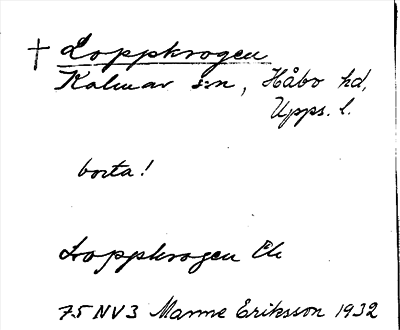 † Loppkrogen
Kalmar s:n, Håbo hd,
Upps. l.
borta!
Loppkrogen Ek
75 NV3 Manne Eriksson 1932